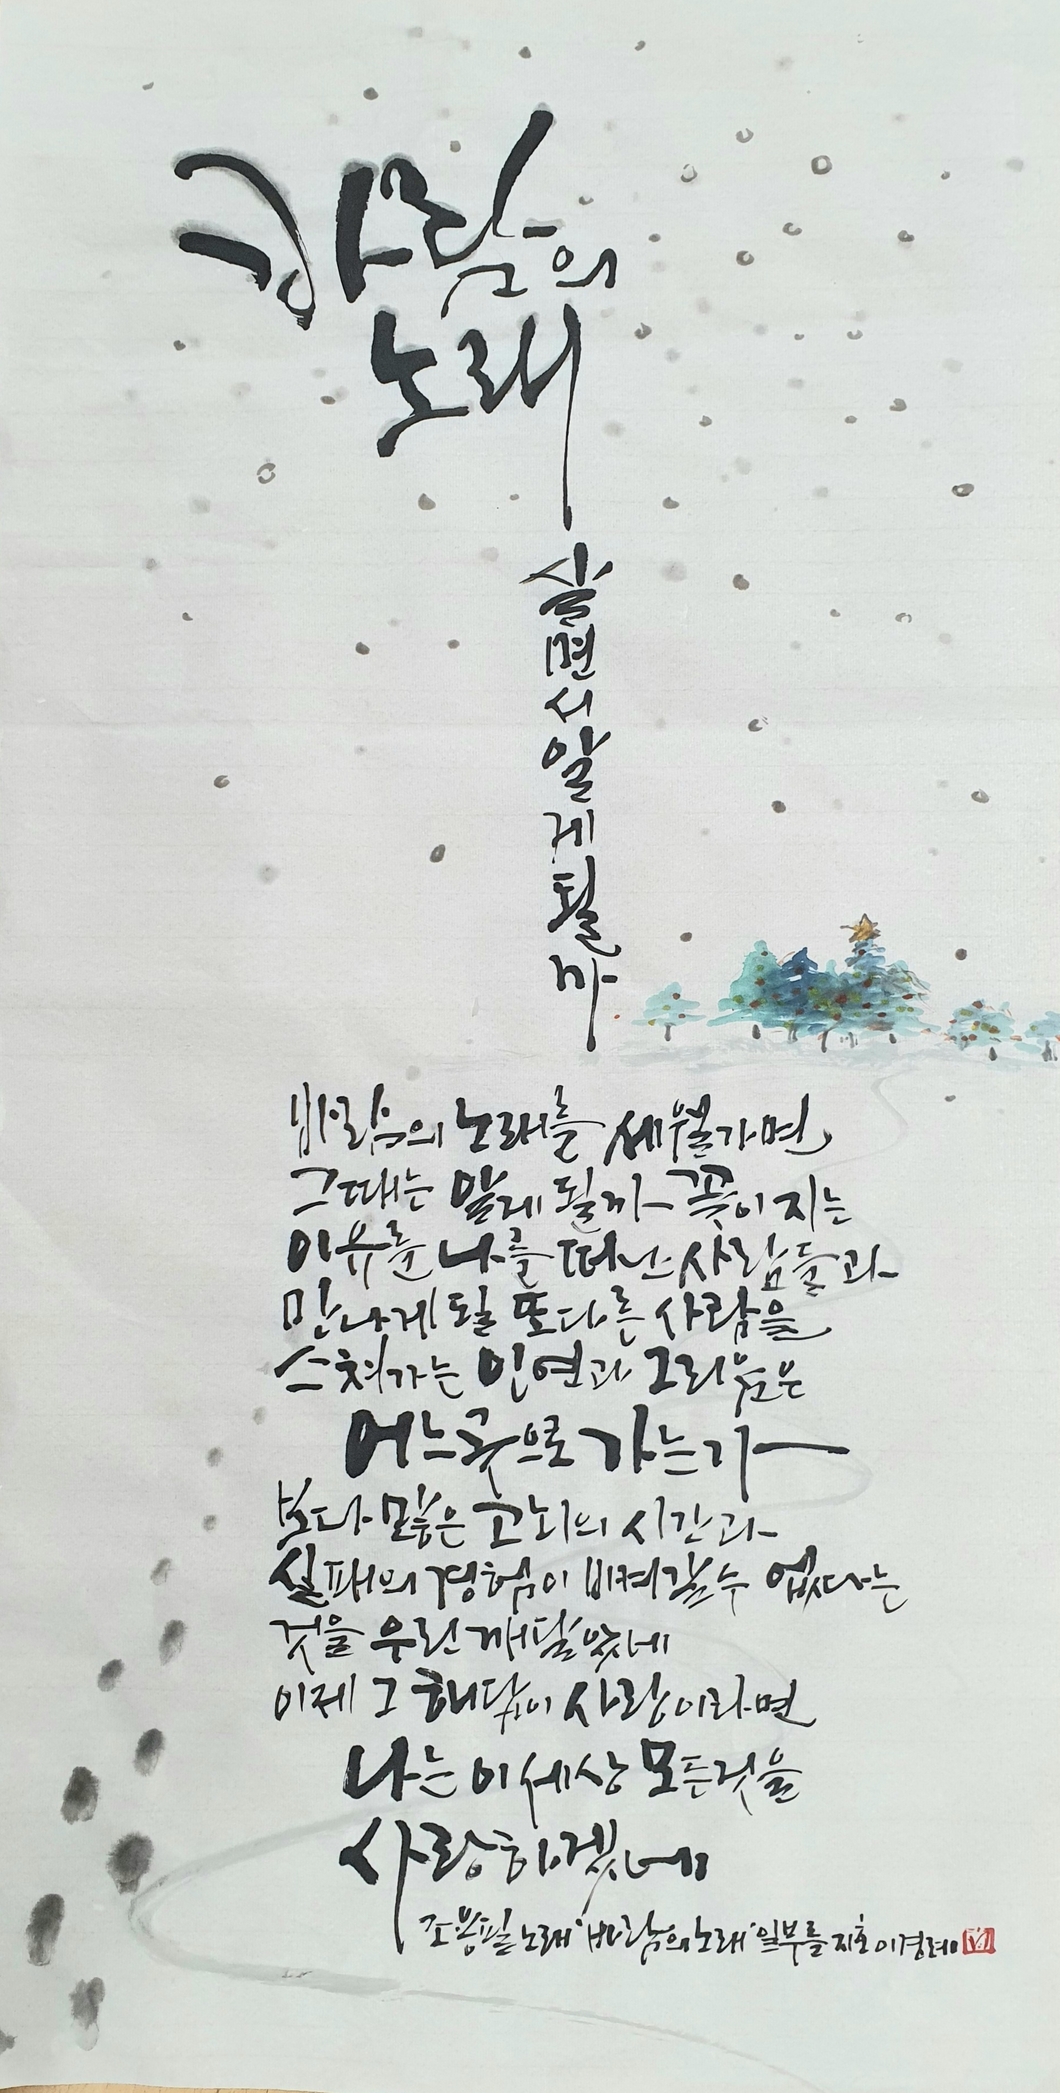 바람의
노래
살면서알게될까
바람의 노래를 세월가면
그때는 알게 될까 꽃이 지는
이유를 나를 떠난 사람들과
만나게될 또다른 사람들
스쳐가는 인연과 그리움은
어느곳으로 가는가
보다 많은 고뇌의 시간과
실패의 경험이 비켜갈수 없다는
것을 우린 깨달았네
이제 그 해답이 사랑이라면
나는 이세상 모든것을
사랑하겠네
조용필 노래 '바람의 노래' 일부를 지호 이경례